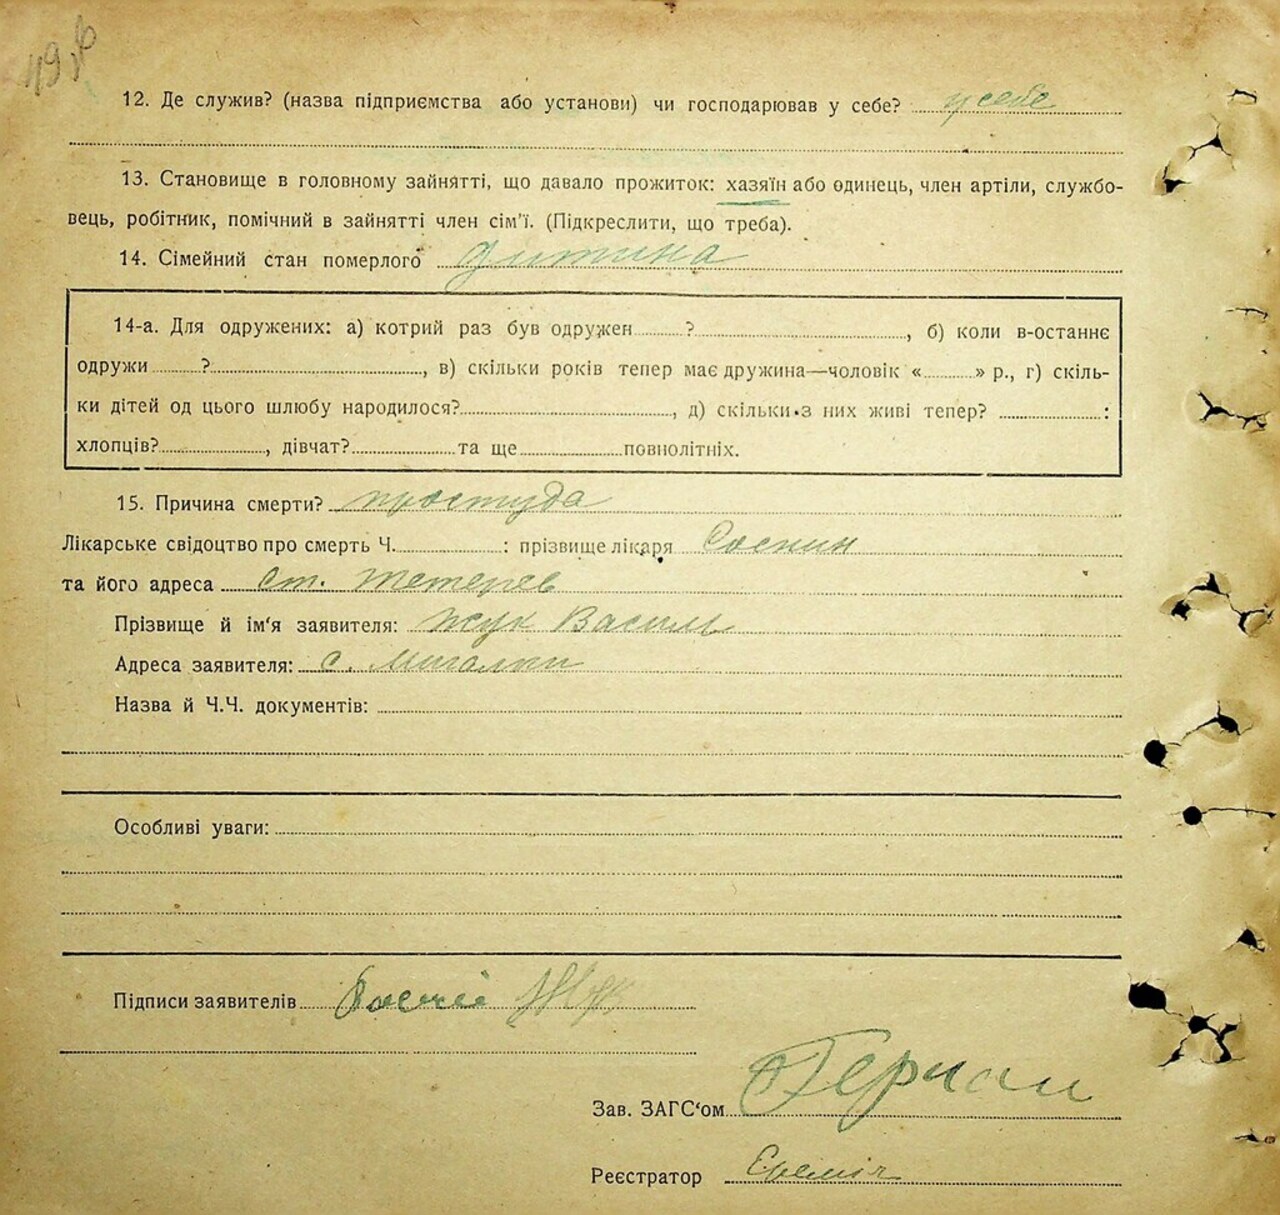 12. Де служив? (назва підприємства або установи) чи господарював у себе? у себе
13. Становище в головному зайнятті, що давало прожиток: хазяїн або одинець, член артіли, службо-
вець, робітник, помічний в зайнятті член сім'ї. (Підкреслити, що треба).
14. Сімейний стан померлого дитина
14-а. Для одружених: а) котрий раз був одружен..........?..............................., б) коли в-останнє
одружи..........?..............................., в) скільки років тепер має дружина—чоловік «..........» р., г) скіль-
ки дітей од цього шлюбу народилося?..............................., д) скільки з них живі тепер? ...............:
хлопців?..............., дівчат?...............та ще...............повнолітніх.
15. Причина смерти? простуда
Лікарське свідоцтво про смерть Ч...............: прізвище лікаря Соснин
та його адреса ст. Тетерев
Прізвище й ім'я заявителя: Жук Василь
Адреса заявителя: с. Мигалки
Назва й Ч.Ч. документів:
Особливі уваги:
Підписи заявителів Жук
Зав. ЗАГС'ом
Реєстратор